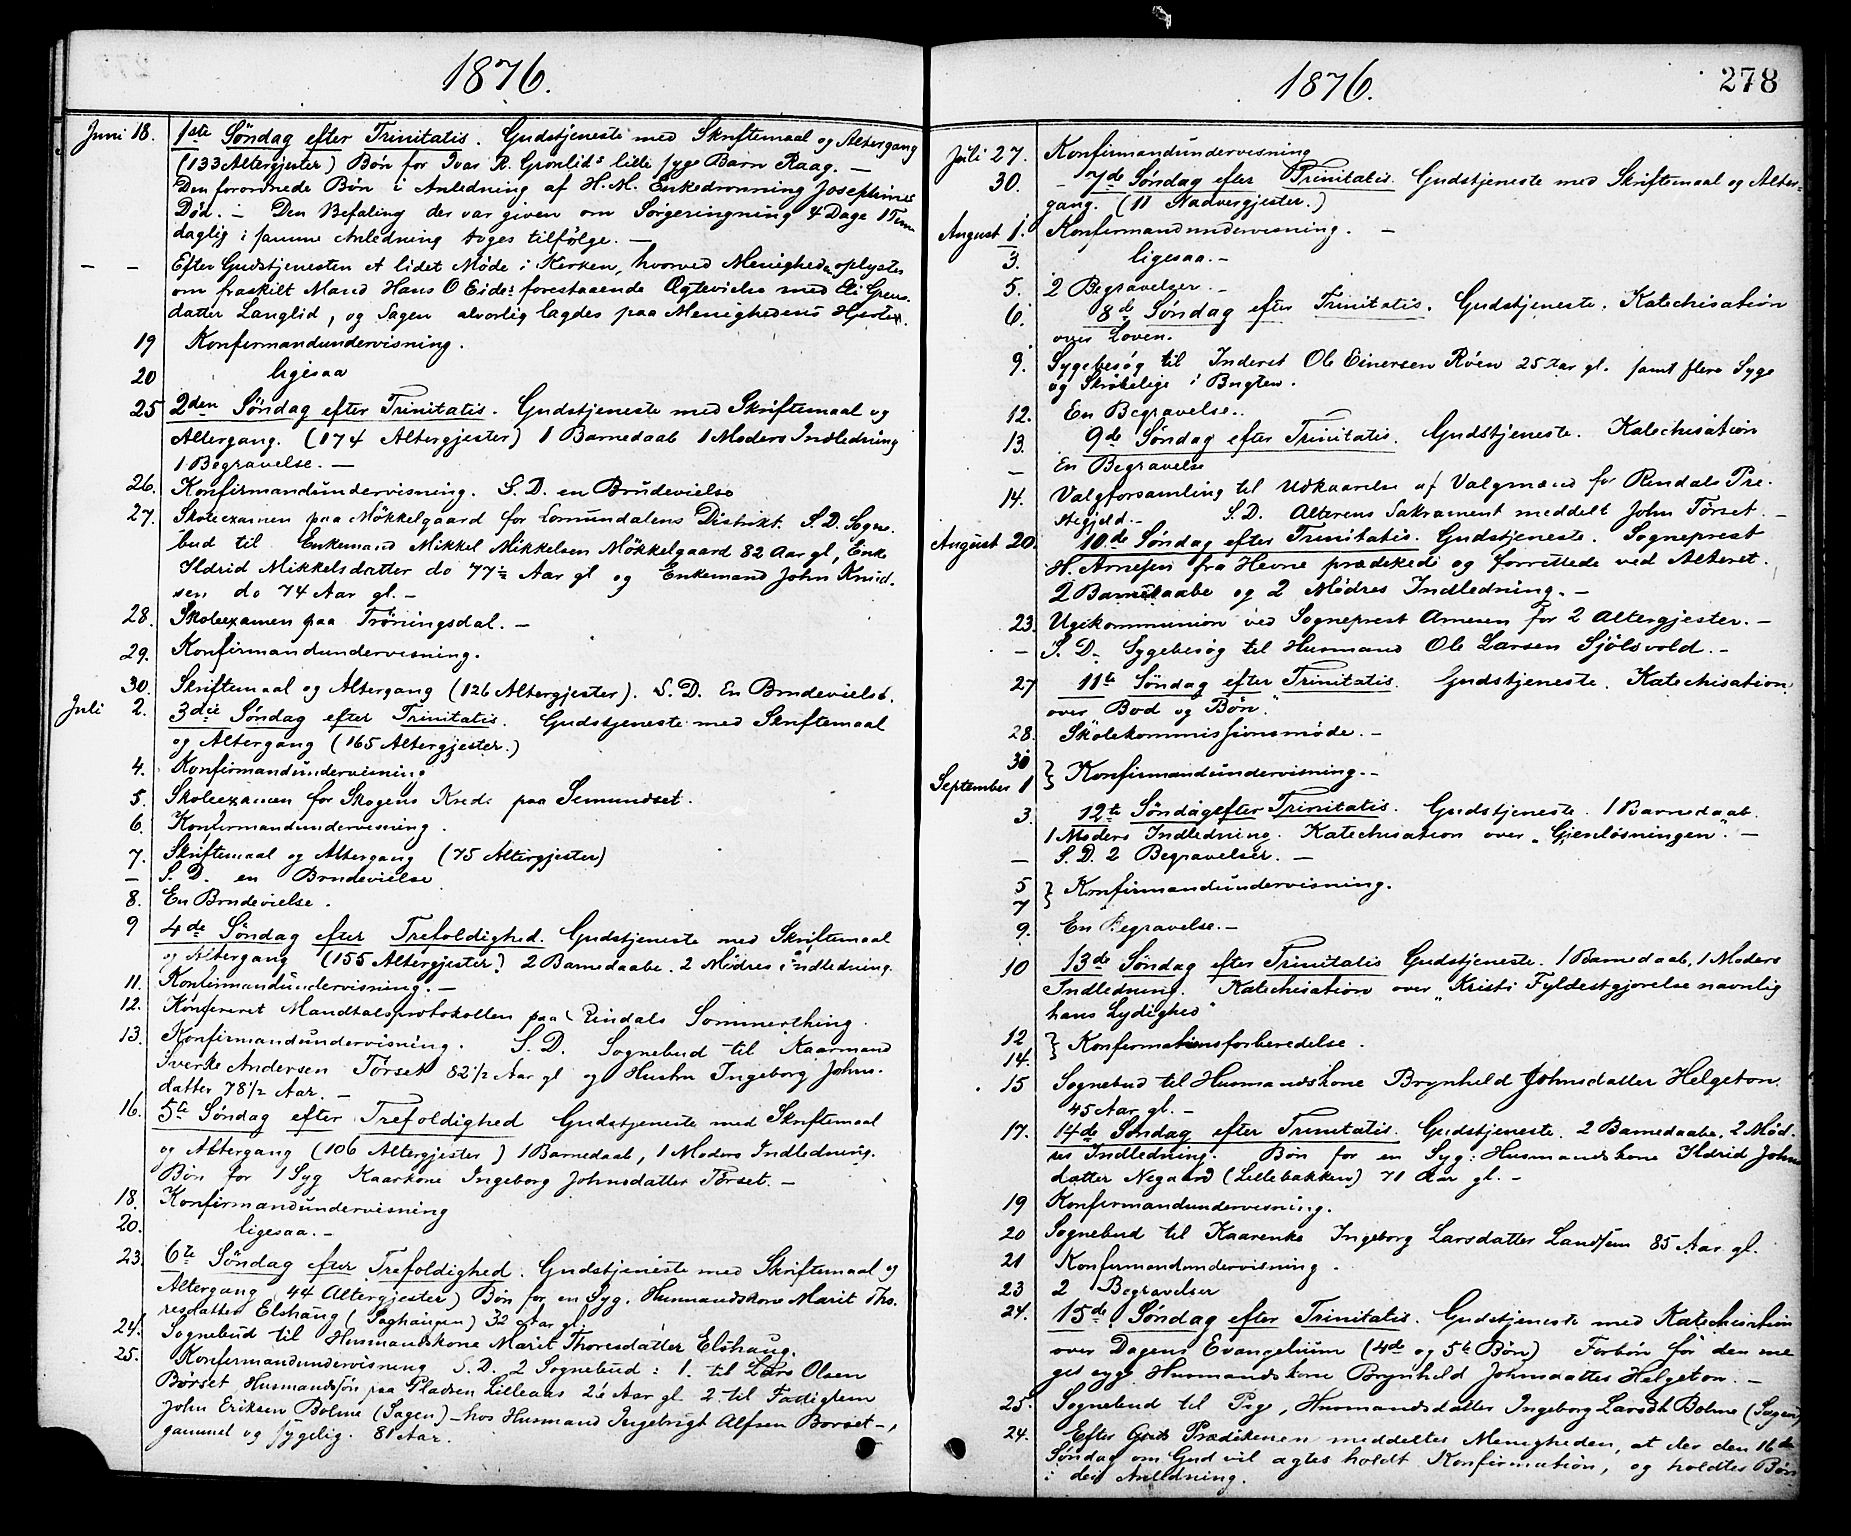 1876.
Juni 18. 1ste Søndag efter Trinitatis. Gudstjeneste med Skriftemaal og Altergang
(133 Altergjester) Bøn for Ivar R. Grønlids lille syge Barn Raag. —
Den forordnede Bøn i Anledning af H. M. Enkedronning Josephines
Død. — Den Befaling der var given om Sørgeringning 4 Dage 1 Time
daglig i samme Anledning toges tilfølge. —
— — Efter Gudstjenesten et lidet Møde i Kirken, hvorved Menigheden oplystes
om fraskilt Mand Hans O Eides forestaaende Ægtevielse med
datter Langlid, og Sagen alvorlig lagdes paa Menighedens Hjerte.
19 Konfirmandundervisning.
20 ligesaa
25 2den Søndag efter Trinitatis. Gudstjeneste med Skriftemaal og
Altergang. (174 Altergjester) 1 Barnedaab 1 Moders Indledning
1 Begravelse. —
26. Konfirmandundervisning. S. D. en Brudevielse
27. Skoleexamen paa Møkkelgaard for Lomundalens Distrikt. S. D. Sogne-
bud til Enkemand Mikkel Mikkelsen Møkkelgaard 82 Aar gl, Enke
Ildrid Mikkelsdatter do 77½ Aar gl og Enkemand John Knud-
sen do 74 Aar gl. —
28. Skoleexamen paa Trøningsdal. —
29. Konfirmandundervisning.
30. Skriftemaal og Altergang (126 Altergjester). S. D. En Brudevielse.
Juli 2. 3die Søndag efter Trinitatis. Gudstjeneste med Skriftemaal
og Altergang (165 Altergjester.)
4. Konfirmandundervisning
5. Skoleexamen for Skogens Kreds paa Semundset.
6. Konfirmandundervisning.
7. Skriftemaal og Altergang (75 Altergjester)
— S. D. en Brudevielse
8. En Brudevielse.
9 4de Søndag efter Trefoldighed. Gudstjeneste med Skriftemaal
og Altergang (155 Altergjester) 2 Barnedaabe. 2 Mødres Indledning.
11. Konfirmandundervisning. —
12. Konfereret Mandtalsprotokollen paa Rindals Sommerthing.
13. Konfirmandundervisning. S. D. Sognebud til Kaarmand
Sverke Andersen Tørset 82½ Aar gl og Hustru Ingeborg Johns-
datter 78½ Aar. —
16. 5te Søndag efter Trefoldighed Gudstjeneste med Skriftemaal
og Altergang (106 Altergjester) 1 Barnedaab, 1 Moders Indledning.
Bøn for 1 Syg Kaarkone Ingeborg Johnsdatter Tørset. —
18. Konfirmandundervisning
20. ligesaa. —
23. 6te Søndag efter Trefoldighed. Gudstjeneste med Skriftemaal og
Altergang (44 Altergjester) Bøn for en Syg. Husmandskone Marit Tho-
resdatter Elshaug (Saghaugen) 32 Aar gl.
24. Sognebud til Husmandskone Marit Thoresdatter Elshaug.
25. Konfirmandundervisning S. D. 2 Sognebud: 1. til Lars Olsen
Børset Husmandssøn paa Pladsen Lilleaas 26 Aar gl. 2. til Fadiglem
John Eriksen Bolme (Sagen) — hos Husmand Ingebrigt Alfsen Børset —,
gammel og sygelig. 81 Aar.
1876. 278
Juli 27. Konfirmandundervisning
30. — 7de Søndag efter Trinitatis. Gudstjeneste med Skriftemaal og Alter-
gang. (11 Nadvergjester.)
August 1. Konfirmandundervisning. —
3. ligesaa. —
5. 2 Begravelser. —
6. 8de Søndag efter Trinitatis. Gudstjeneste. Katechisation
over Loven.
9. Sygebesøg til Inderst Ole Einersen Røen 25 Aar gl. samt flere Syge
og Skrøbelige i Bugten.
12. En Begravelse.
13. 9de Søndag efter Trinitatis. Gudstjeneste. Katechisation
— En Begravelse
14. Valgforsamling til Udkaarelse af Valgmænd for Rindals Pre-
stegjeld. — S. D. Alterens Sakrament meddelt John Tørset. —
August 20. 10de Søndag efter Trinitatis. Gudstjeneste. Sogneprest
H. Arnesen fra Hevne prædikede og forrettede ved Alteret.
2 Barnedaabe og 2 Mødres Indledning. —
23. Ugekommunion ved Sogneprest Arnesen for 2 Altergjester. —
— S. D. Sygebesøg til Husmand Ole Larsen Sjølsvold. —
27 11te Søndag efter Trinitatis. Gudstjeneste. Katechisation
over "Bod og Bøn".
28. Skolekommissionsmøde. —
30
September 1 } Konfirmandundervisning. —
3. 12te Søndag efter Trinitatis. Gudstjeneste. 1 Barnedaab.
1 Moders Indledning. Katechisation over „Gjenløsningen". —
— S. D. 2 Begravelser. —
5
7 } Konfirmandundervisning.
9. En Begravelse. —
10 13de Søndag efter Trinitatis Gudstjeneste. 1 Barnedaab, 1 Moders
Indledning. Katechisation over „Kristi Fyldestgjørelse navnlig
hans Lydighed"
12
14. } Konfirmationsforberedelse.
15 Sognebud til Husmandskone Brynhild Johnsdatter Helgeton.
45 Aar gl. —
17. 14de Søndag efter Trinitatis. Gudstjeneste. 2 Barnedaabe. 2 Mød-
res Indledning. Bøn for en Syg: Husmandskone Ildrid Johns
datter Negaard (Lillebakken) 71 Aar gl. —
19 Konfirmandundervisning.
20 Sognebud til Kaarenke Ingeborg Larsdatter Landsem 85 Aar gl.
21 Konfirmandundervisning.
23 2 Begravelser
24. 15de Søndag efter Trinitatis. Gudstjeneste med Katechisation
over Dagens Evangelium (4de og 5te Bøn) Forbøn for den me-
get syge Husmandskone Brynhild Johnsdatter Helgeton. —
25. Sognebud til Pige, Husmandsdatter Ingeborg Larsdt Bolme (Sagen)
24. Efter Prædikenen meddeltes Menigheden, at der den 16de
Søndag om Gud vil agtes holdt Konfirmation, og holdtes Bøn
i den Anledning.